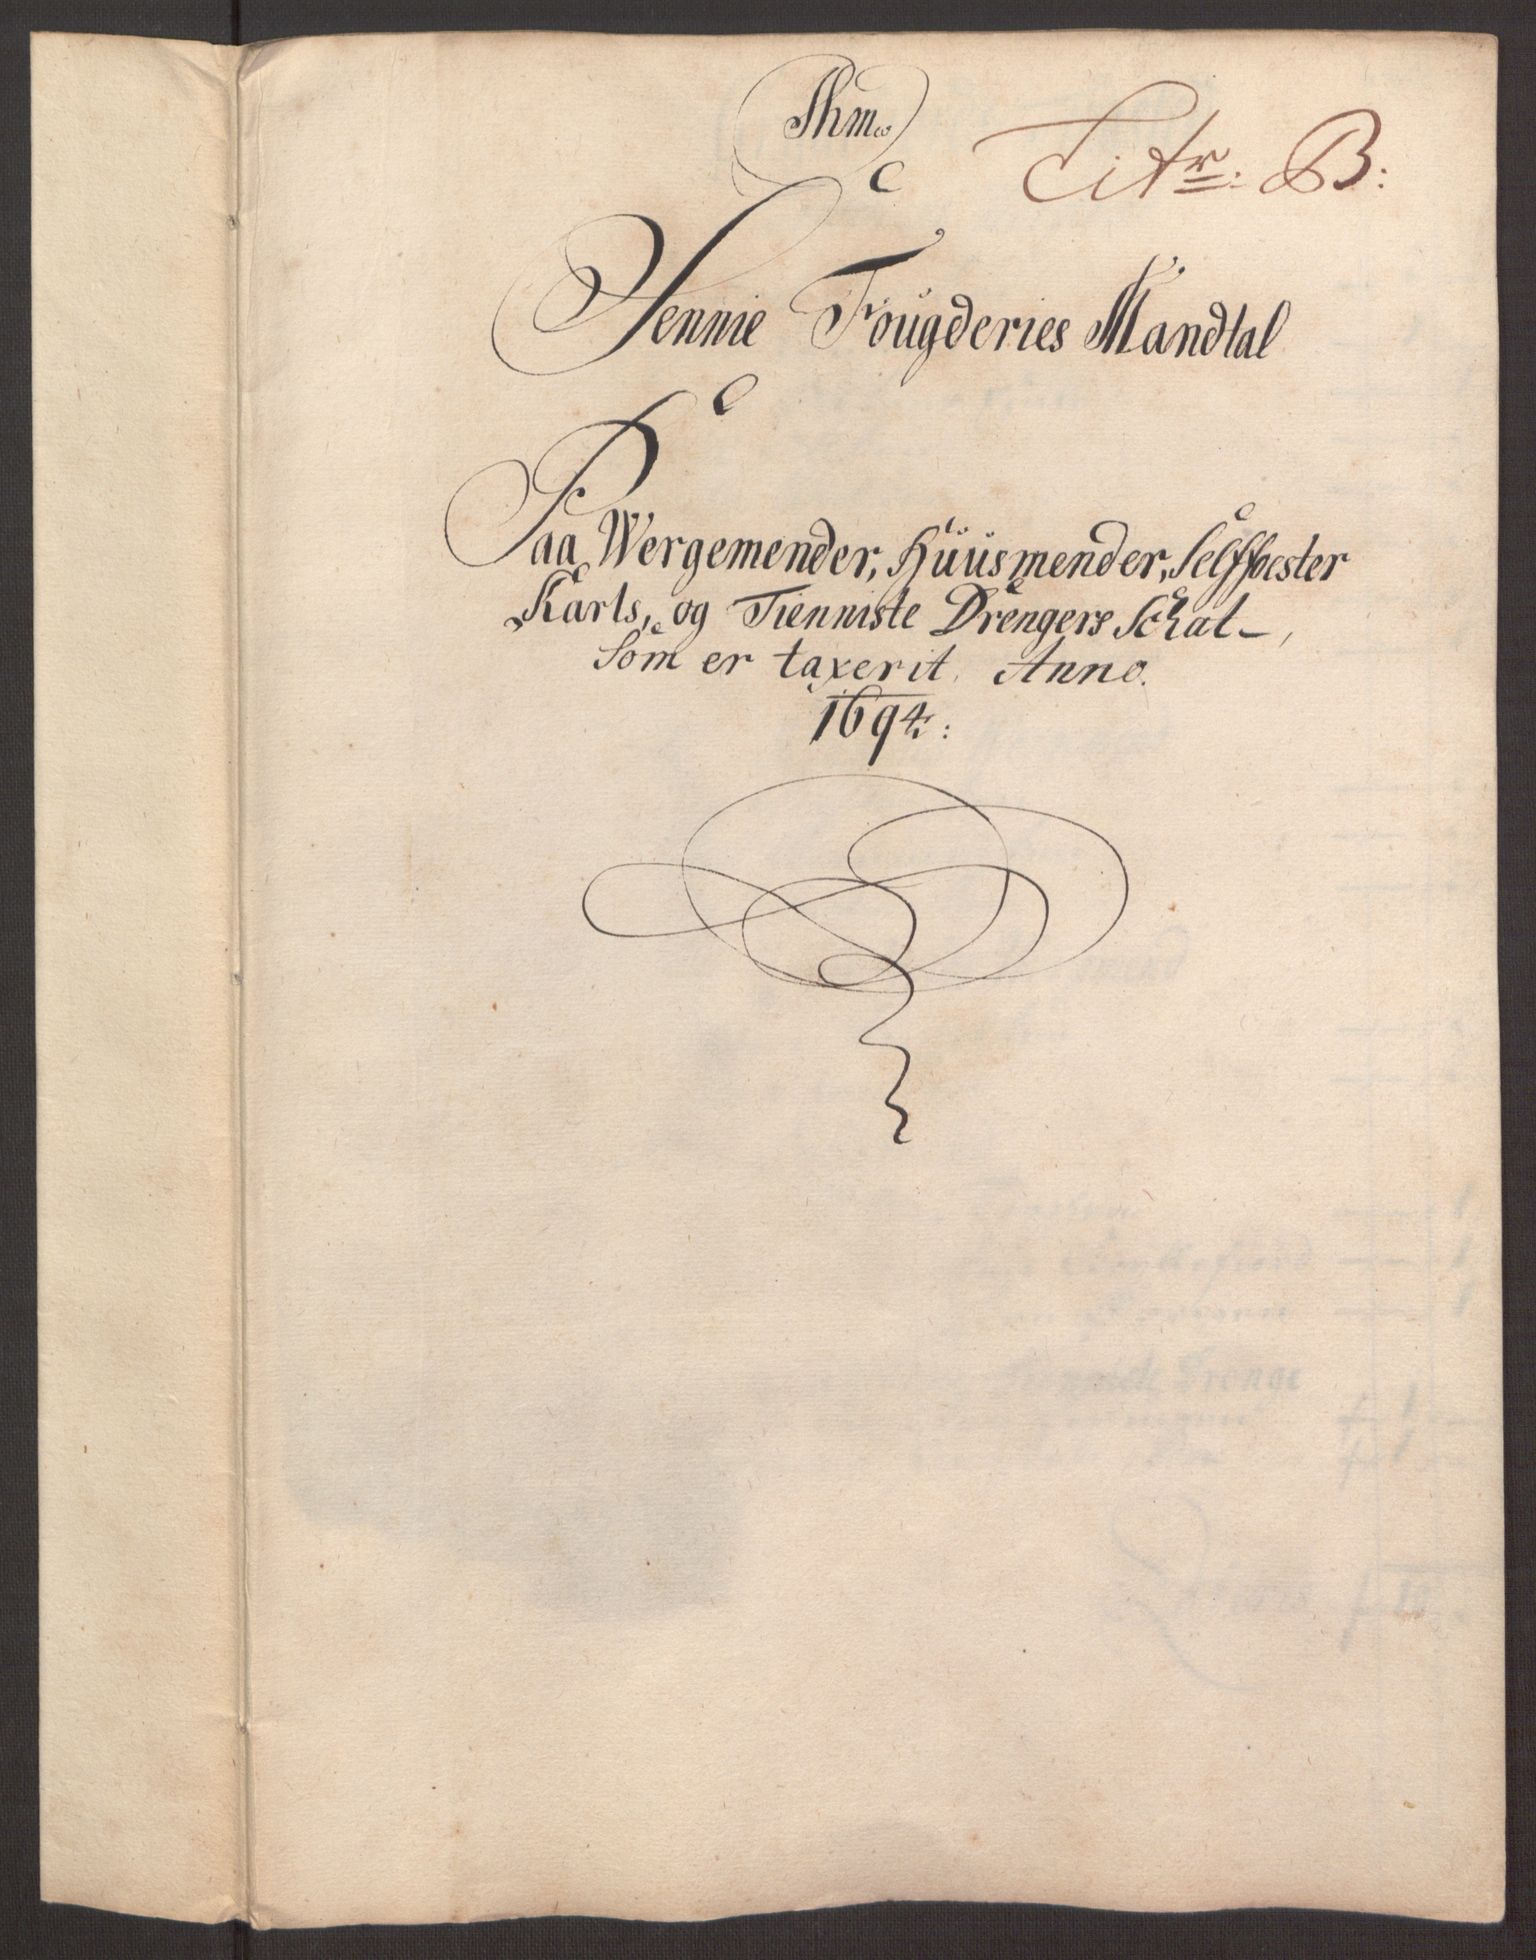 Litr: B:
Sennie Fougderies Mandtal
Paa Wergemender, Huusmender, Selffoester
Karls, og Tienniste Drengers Schat,
Som er taxerit. Anno.
1694: